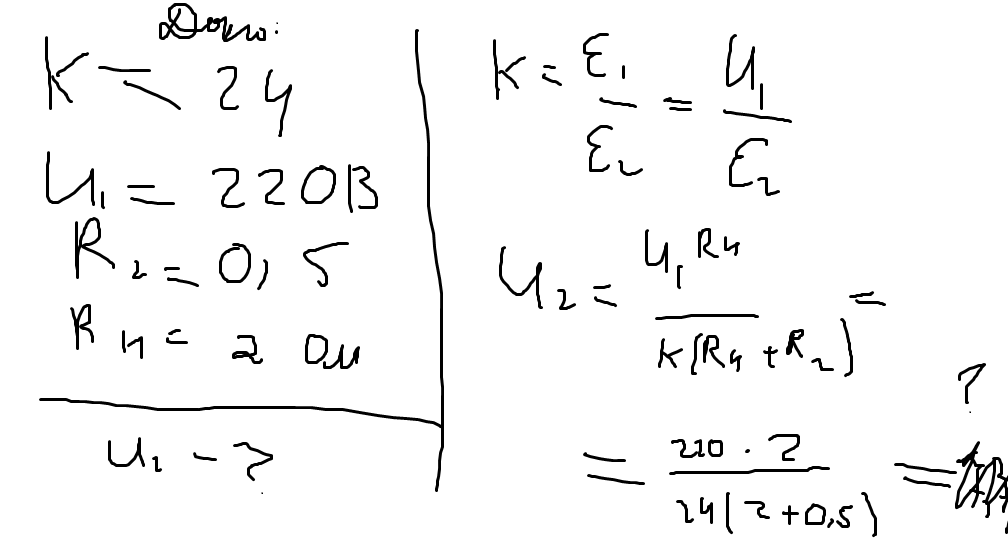 Дано:
K = 24
U₁ = 220В
R₂ = 0,5
Rн = 2 Ом
U₂ - ?
K = ℰ₁/ℰ₂ = U₁/ℰ₂
U₂ = U₁Rн/K(Rн + R₂) =
= 220 · 2/24(2+0,5) =
?